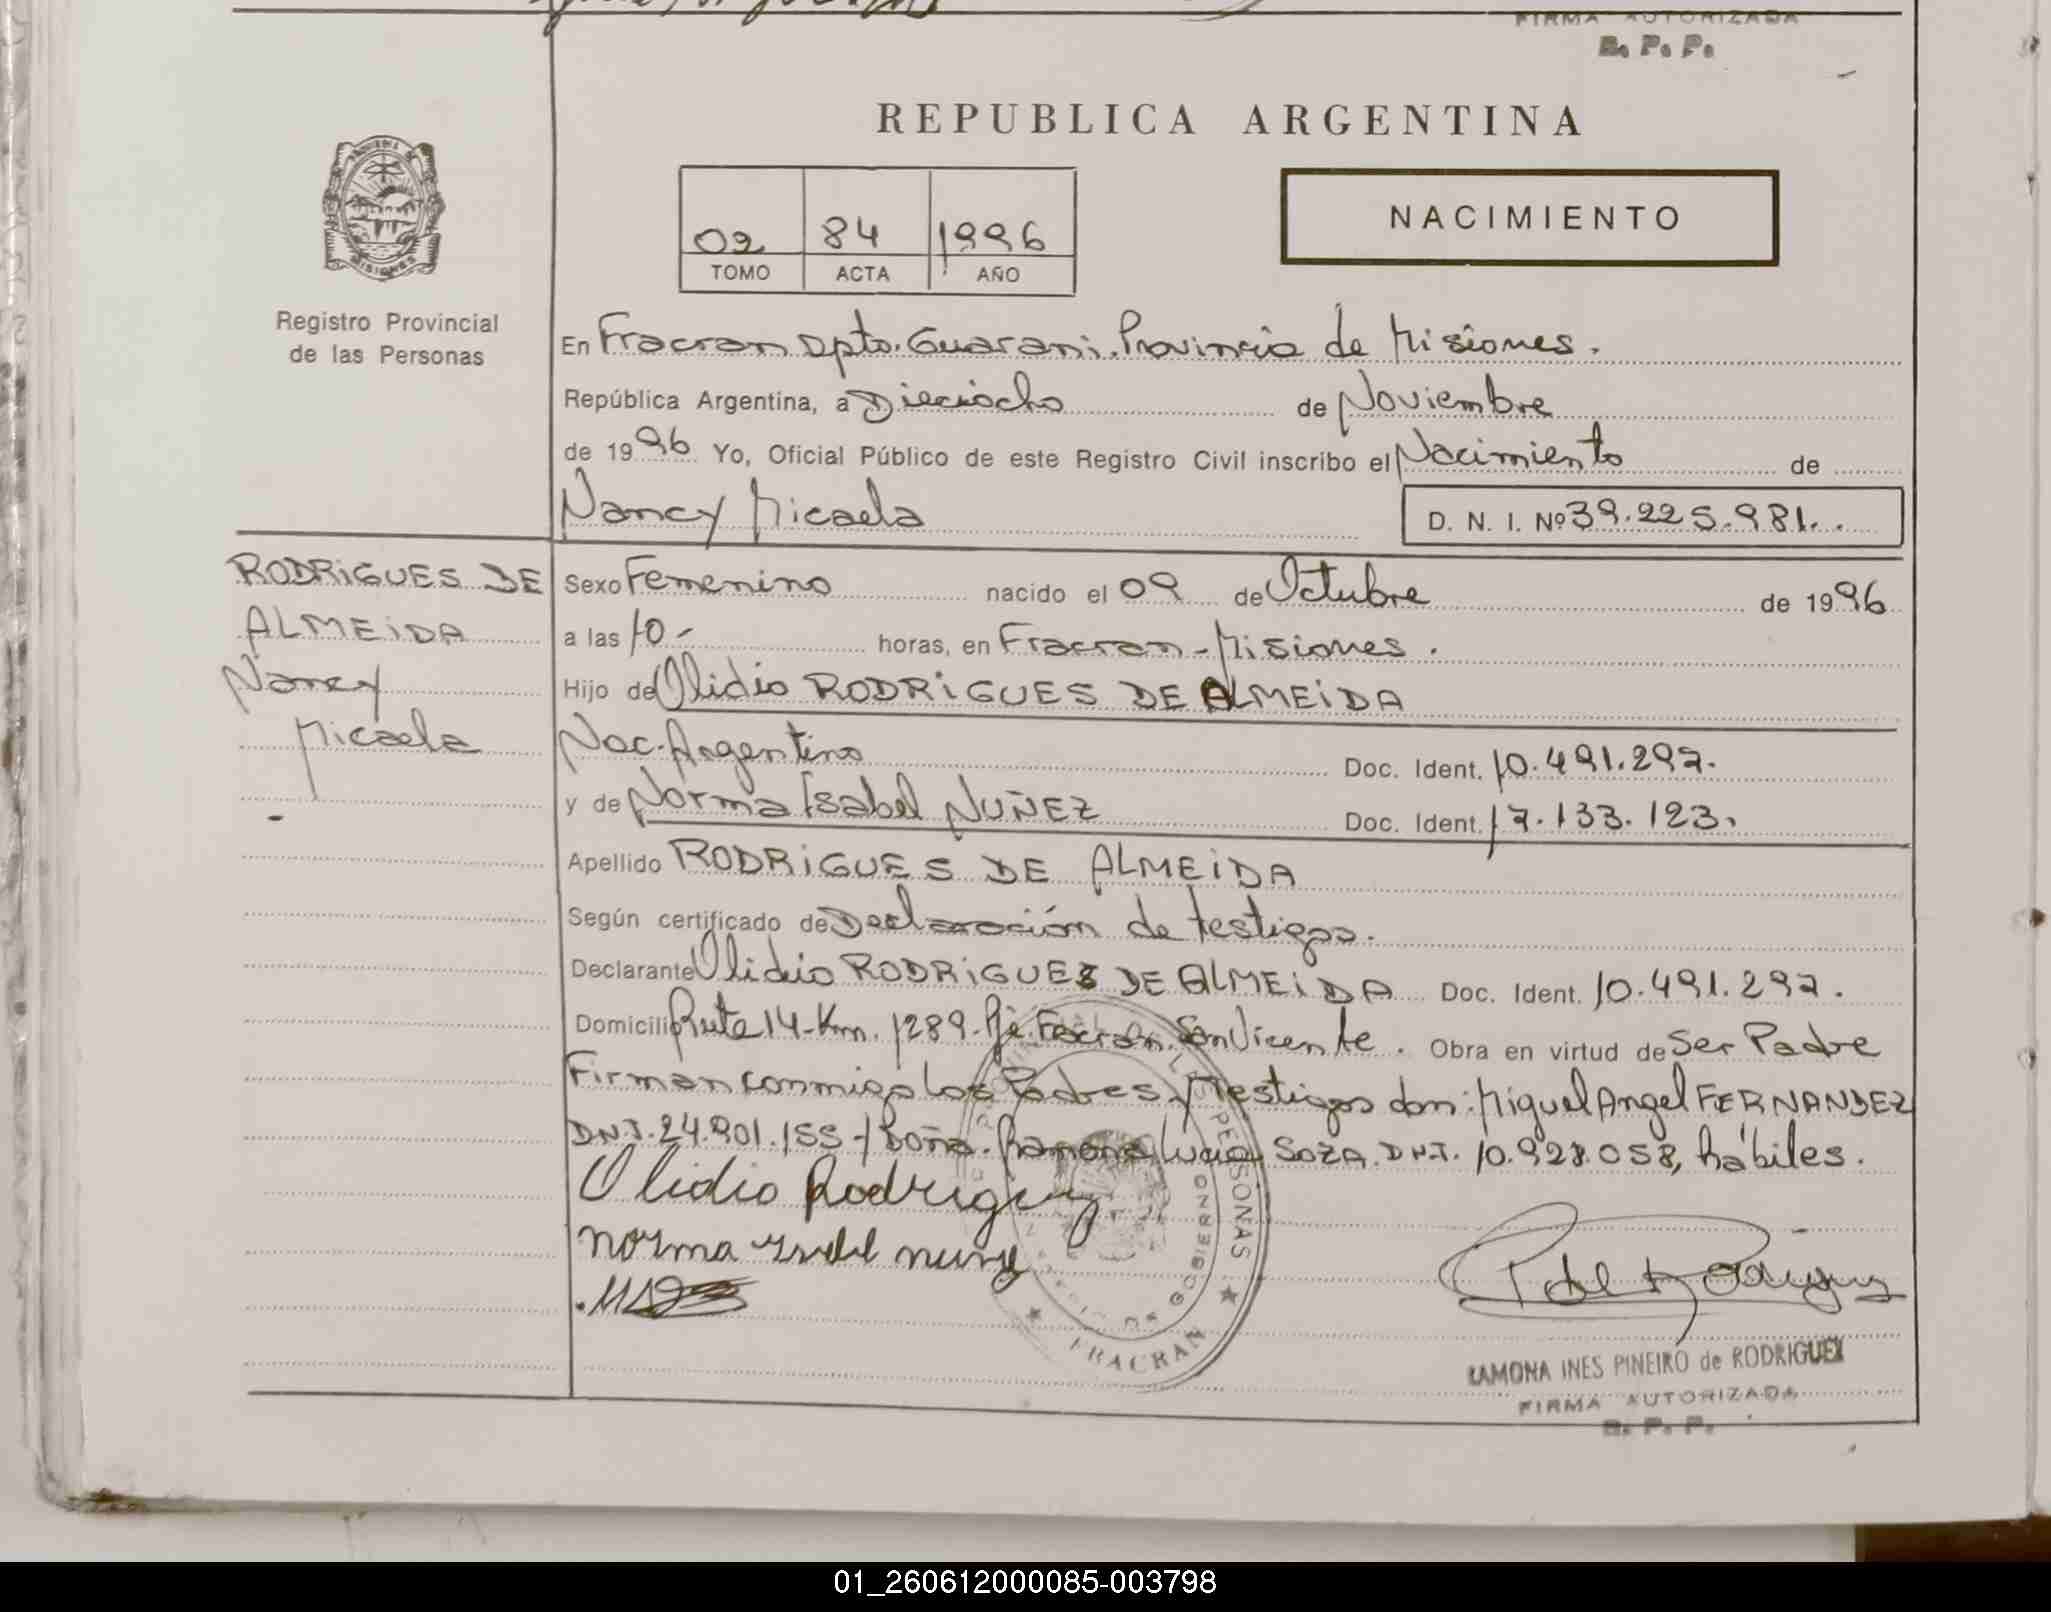 FIRMA AUTORIZADA
R. P. P.
REPUBLICA ARGENTINA
02 84 1996
TOMO ACTA AÑO
NACIMIENTO
Registro Provincial
de las Personas
En Fracran Dpto. Guarani. Provincia de Misiones.
República Argentina, a Dieciocho de Noviembre
de 1996 Yo, Oficial Público de este Registro Civil inscribo el Nacimiento de
Nancy Micaela D. N. I. Nº 39.225.981.
RODRIGUES DE
ALMEIDA
Nancy
Micaela
Sexo Femenino nacido el 09 de Octubre de 1996
a las 10- horas, en Fracran-Misiones.
Hijo de Olidio RODRIGUES DE ALMEIDA
Nac. Argentino Doc. Ident. 10.491.297.
y de Norma Isabel NUÑEZ Doc. Ident. 17.133.123.
Apellido RODRIGUES DE ALMEIDA
Según certificado de Declaración de testigos.
Declarante Olidio RODRIGUES DE ALMEIDA Doc. Ident. 10.491.297.
Domicilio Ruta 14-Km. 1289. Pje. Fracran. San Vicente. Obra en virtud de Ser Padre
Firman conmigo los Padres y testigos don: Miguel Angel FERNANDEZ
DNI. 24.901.155-/ Doña. Ramona Lucia SOZA. DNI. 10.928.058, hábiles.
Olidio Rodriguez
norma
PERSONAS
GOBIERNO
FRACRAN
RAMONA INES PINEIRO de RODRIGUEZ
FIRMA AUTORIZADA
R. P. P.
01_260612000085-003798